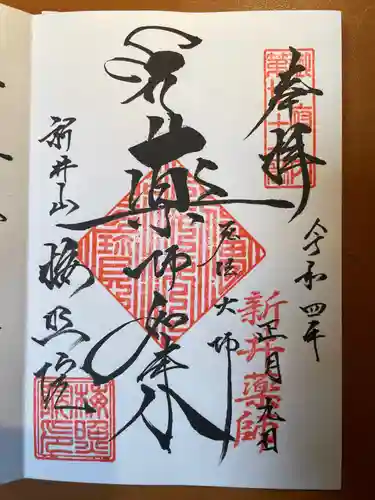 奉拝
令和四年
正月九日
新井薬師
薬師如来
弘法大師
新井山
梅照院